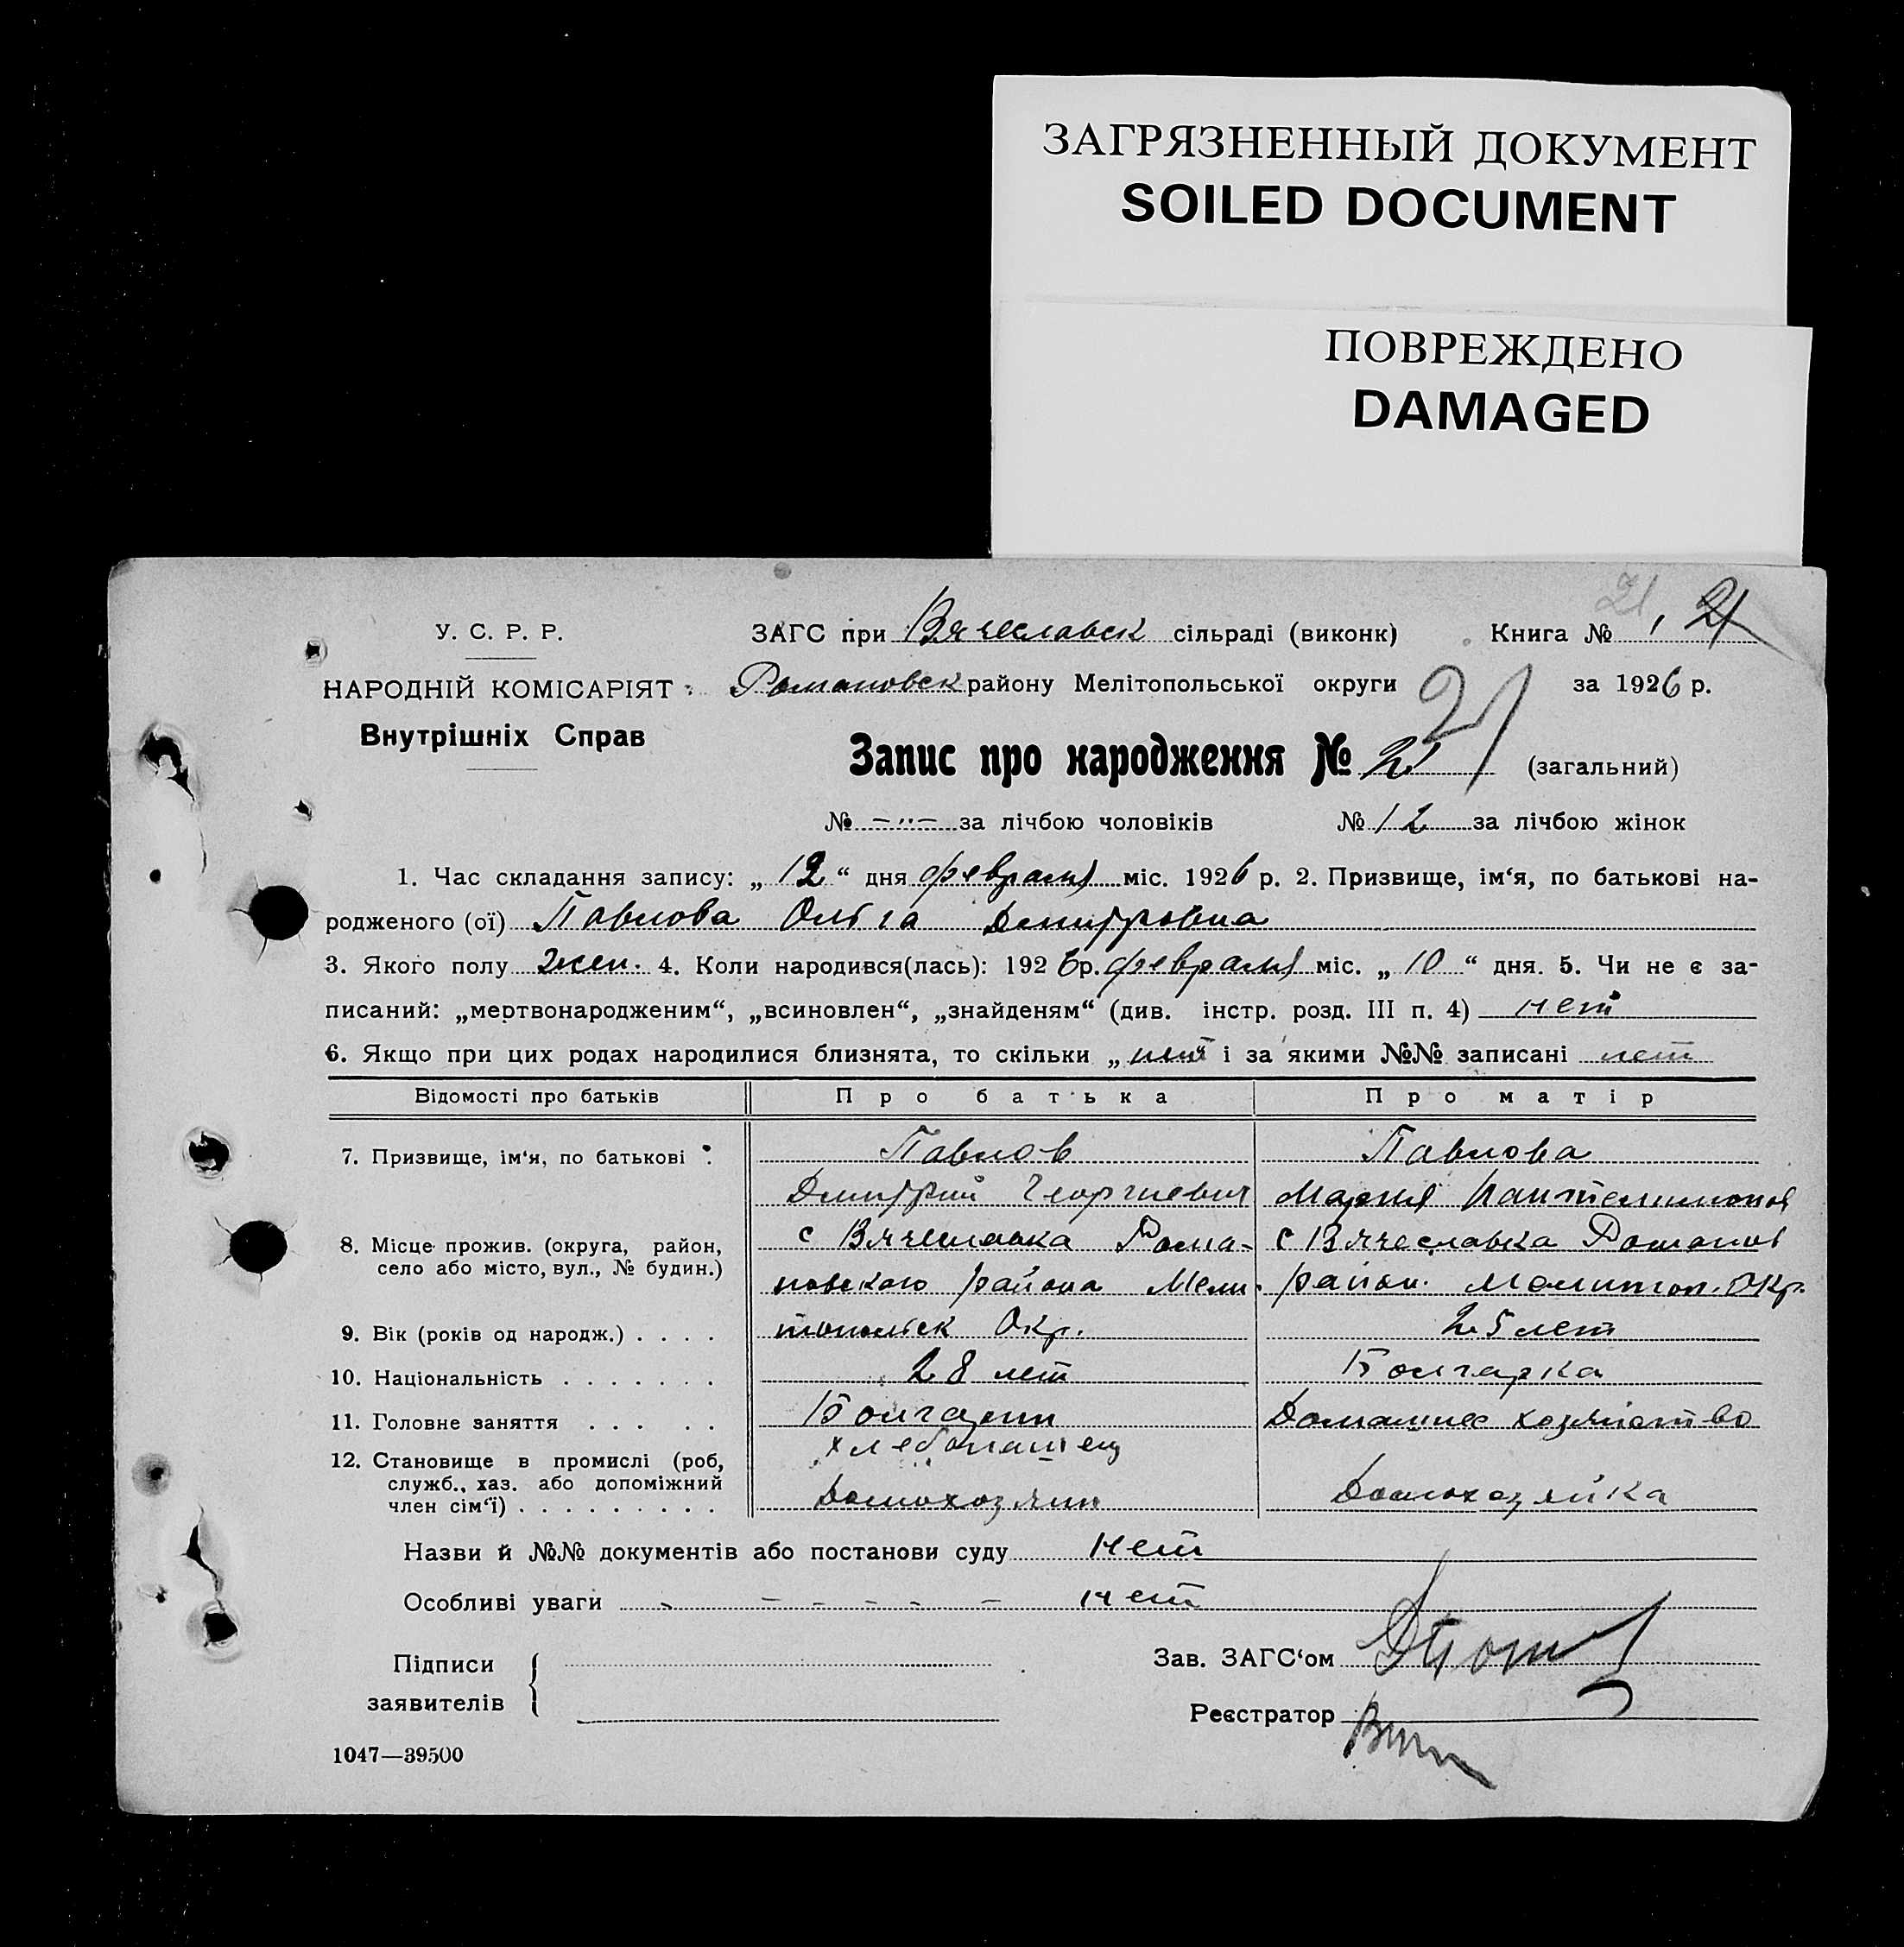 ЗАГРЯЗНЕННЫЙ ДОКУМЕНТ
SOILED DOCUMENT
ПОВРЕЖДЕНО
DAMAGED
21, 21
У. С. Р. Р. ЗАГС при Вячеславск сільраді (виконк) Книга №
НАРОДНІЙ КОМІСАРІЯТ Романовск району Мелітопольської округи за 1926 р.
Внутрішніх Справ
21
Запис про народження № 21 (загальний)
№ -"- за лічбою чоловіків № 12 за лічбою жінок
1. Час складання запису: „12“ дня февраля міс. 1926 р. 2. Призвище, ім‘я, по батькові на-
родженого (ої) Павлова Ольга Дмитровна
3. Якого полу жен. 4. Коли народився(лась): 1926 р. февраля міс. „10“ дня. 5. Чи не є за-
писаний: „мертвонародженим“, „всиновлен“, „знайденям“ (див. інстр. розд. III п. 4) нет
6. Якщо при цих родах народилися близнята, то скільки „нет“ і за якими №№ записані нет
Відомості про батьків Про батька Про матір
7. Призвище, ім‘я, по батькові Павлов Павлова
Дмитрий Георгиевич Мария
8. Місце прожив. (округа, район, с Вячеславка Рома- с Вячеславка Романов
село або місто, вул., № будин.) новского района Мели- район. Мелитоп. Окр.
9. Вік (років од народж.) . . . . топольск Окр. 25 лет
10. Національність . . . . . . . 28 лет Болгарка
11. Головне заняття . . . . . Болгарин Домашнее хозяйство
хлебопашец
12. Становище в промислі (роб,
служб., хаз. або допоміжний
член сім‘ї) . . . . . . . . . Домохозяин Домохозяйка
Назви й №№ документів або постанови суду нет
Особливі уваги - - - - - нет
Підписи Зав. ЗАГС‘ом
заявителів Реєстратор
1047—39500